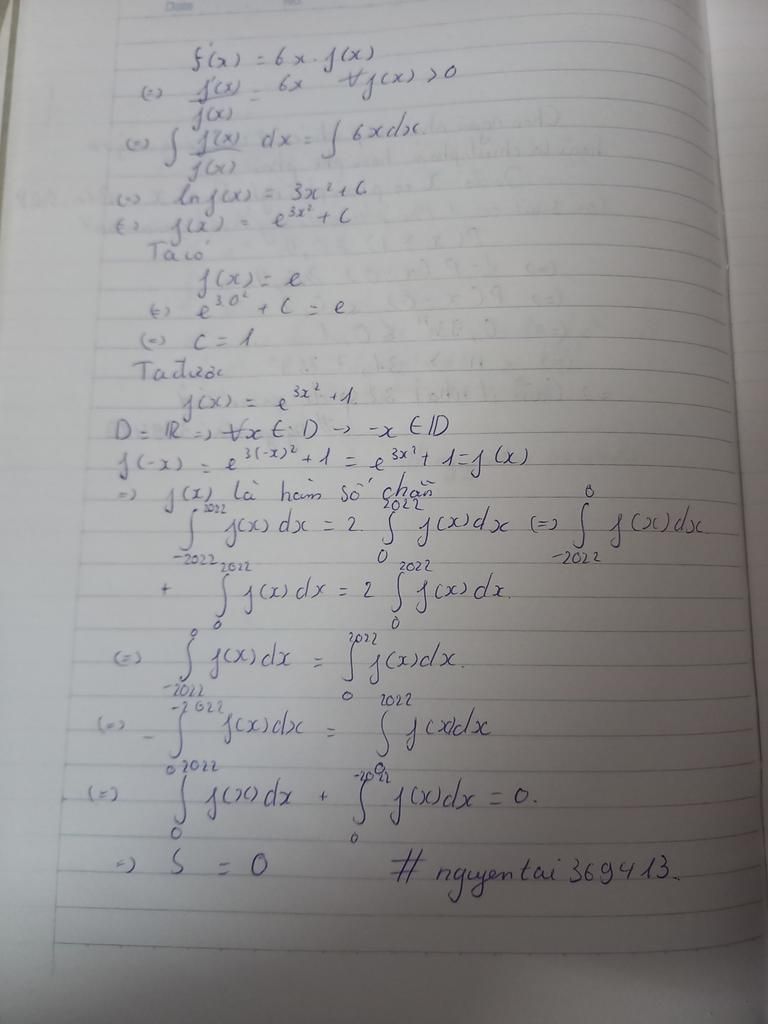 Date No.
f'(x) = 6x.f(x)
(=) f'(x)/f(x) = 6x ∀f(x) > 0
(=) ∫ f'(x)/f(x) dx = ∫ 6xdx
(=) ln f(x) = 3x² + C
(=) f(x) = e^{3x²} + C
Ta có
f(x) = e
(=) e^{3.0²} + C = e
(=) C = 1
Ta được
f(x) = e^{3x²} + 1.
D = ℝ => ∀x ∈ D -> -x ∈ D
f(-x) = e^{3(-x)²} + 1 = e^{3x²} + 1 = f(x)
=> f(x) là hàm số chẵn
∫_{-2022}^{2022} f(x) dx = 2. ∫_{0}^{2022} f(x) dx (=) ∫_{-2022}^{0} f(x) dx
+ ∫_{0}^{2022} f(x) dx = 2 ∫_{0}^{2022} f(x) dx.
(=) ∫_{-2022}^{0} f(x) dx = ∫_{0}^{2022} f(x) dx.
(=) - ∫_{0}^{-2022} f(x) dx = ∫_{0}^{2022} f(x) dx
(=) ∫_{0}^{2022} f(x) dx + ∫_{0}^{-2022} f(x) dx = 0.
=> S = 0 # nguyentai369413.